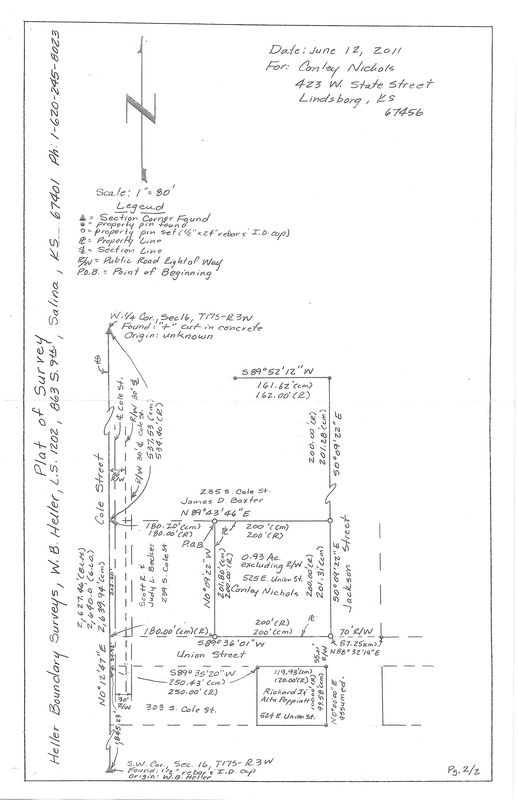 Plat of Survey
Heller Boundary Surveys, W.B. Heller, L.S. 1202, 863 S. 9th, Salina, KS. 67401 Ph: 1-620-245-8023
Date: June 12, 2011
For: Conley Nichols
423 W. State Street
Lindsborg, KS
67456
Scale: 1" = 80'
Legend
= Section Corner Found
= property pin found
= property pin set (1/2" x 24" rebar & I.D. cap)
= Property Line
= Section Line
R/W = Public Road Right of Way
P.O.B. = Point of Beginning
W. 1/4 Cor., Sec 16, T17S-R3W
Found: "+" cut in concrete
Origin: unknown
S 89° 52' 12" W
161.62' (cm)
162.00' (R)
200.00' (R)
201.28' (cm)
S 0° 09' 22" E
Cole St.
R/W 30'
R/W 30' Cole St.
537.53 (cm)
534.40' (R)
Cole Street
235 S. Cole St.
James D Baxter
N 89° 43' 46" E
180.20' (cm)
180.00' (R)
200' (cm)
200' (R)
P.O.B
0.93 Ac.
excluding R/W
525 E. Union St.
Conley Nichols
N 0° 09' 22" W
201.80' (cm)
200.00' (R)
200.00' (R)
201.31' (cm)
S 0° 09' 22" E
Jackson Street
Scott R &
Judy L. Becker
239 S. Cole St
2,640.0' (G.L.O.)
2,639.94' (cm)
N 0° 12' 47" E
180.00' (cm)(R)
200' (R)
200' (cm)
S 89° 36' 01" W
Union Street
70' R/W
87.25 (cm)
N 88° 32' 19" E
S 89° 35' 20" W
250.43' (cm)
250.00' (R)
30'
R/W
303 S. Cole St.
119.93' (cm)
120.00' (R)
Richard J &
Alta Peppiatt
524 E. Union St.
100.00' (R)
99.58 (cm)
R/W
N 0° 00' 00" E
assumed.
S.W. Cor., Sec. 16, T17S-R3W
Found: 1/2" rebar & I.D. cap
Origin: W.B Heller
Pg. 2/2